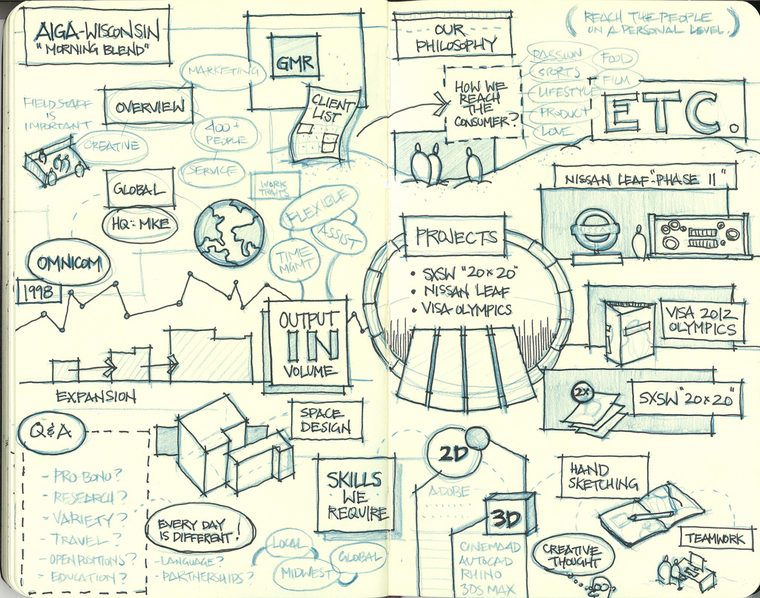 AIGA-WISCONSIN
"MORNING BLEND"
MARKETING
GMR
CLIENT
LIST
FIELD STAFF
IS
IMPORTANT
OVERVIEW
CREATIVE
400+
PEOPLE
SERVICE
GLOBAL
HQ = MKE
WORK
TRAITS
FLEXIBLE
ASSIST
TIME
MGMT
OMNICOM
1998
EXPANSION
OUTPUT
IN
VOLUME
Q&A
- PRO-BONO?
- RESEARCH?
- VARIETY?
- TRAVEL?
- OPEN POSITIONS?
- EDUCATION?
SPACE
DESIGN
EVERY DAY
IS DIFFERENT!
- LANGUAGE?
- PARTNERSHIPS?
SKILLS
WE
REQUIRE
LOCAL
MIDWEST
GLOBAL
OUR
PHILOSOPHY
REACH THE PEOPLE
ON A PERSONAL LEVEL.
HOW WE
REACH
THE
CONSUMER?
PASSION
SPORTS
LIFESTYLE
PRODUCT
LOVE
FOOD
FILM
ETC.
NISSAN LEAF "PHASE II"
PROJECTS
• SXSW "20x20"
• NISSAN LEAF
• VISA-OLYMPICS
VISA 2012
OLYMPICS
2X
SXSW "20x20"
2D
ADOBE
3D
CINEMA4D
AUTOCAD
RHINO
3DS MAX
HAND
SKETCHING
CREATIVE
THOUGHT
TEAMWORK